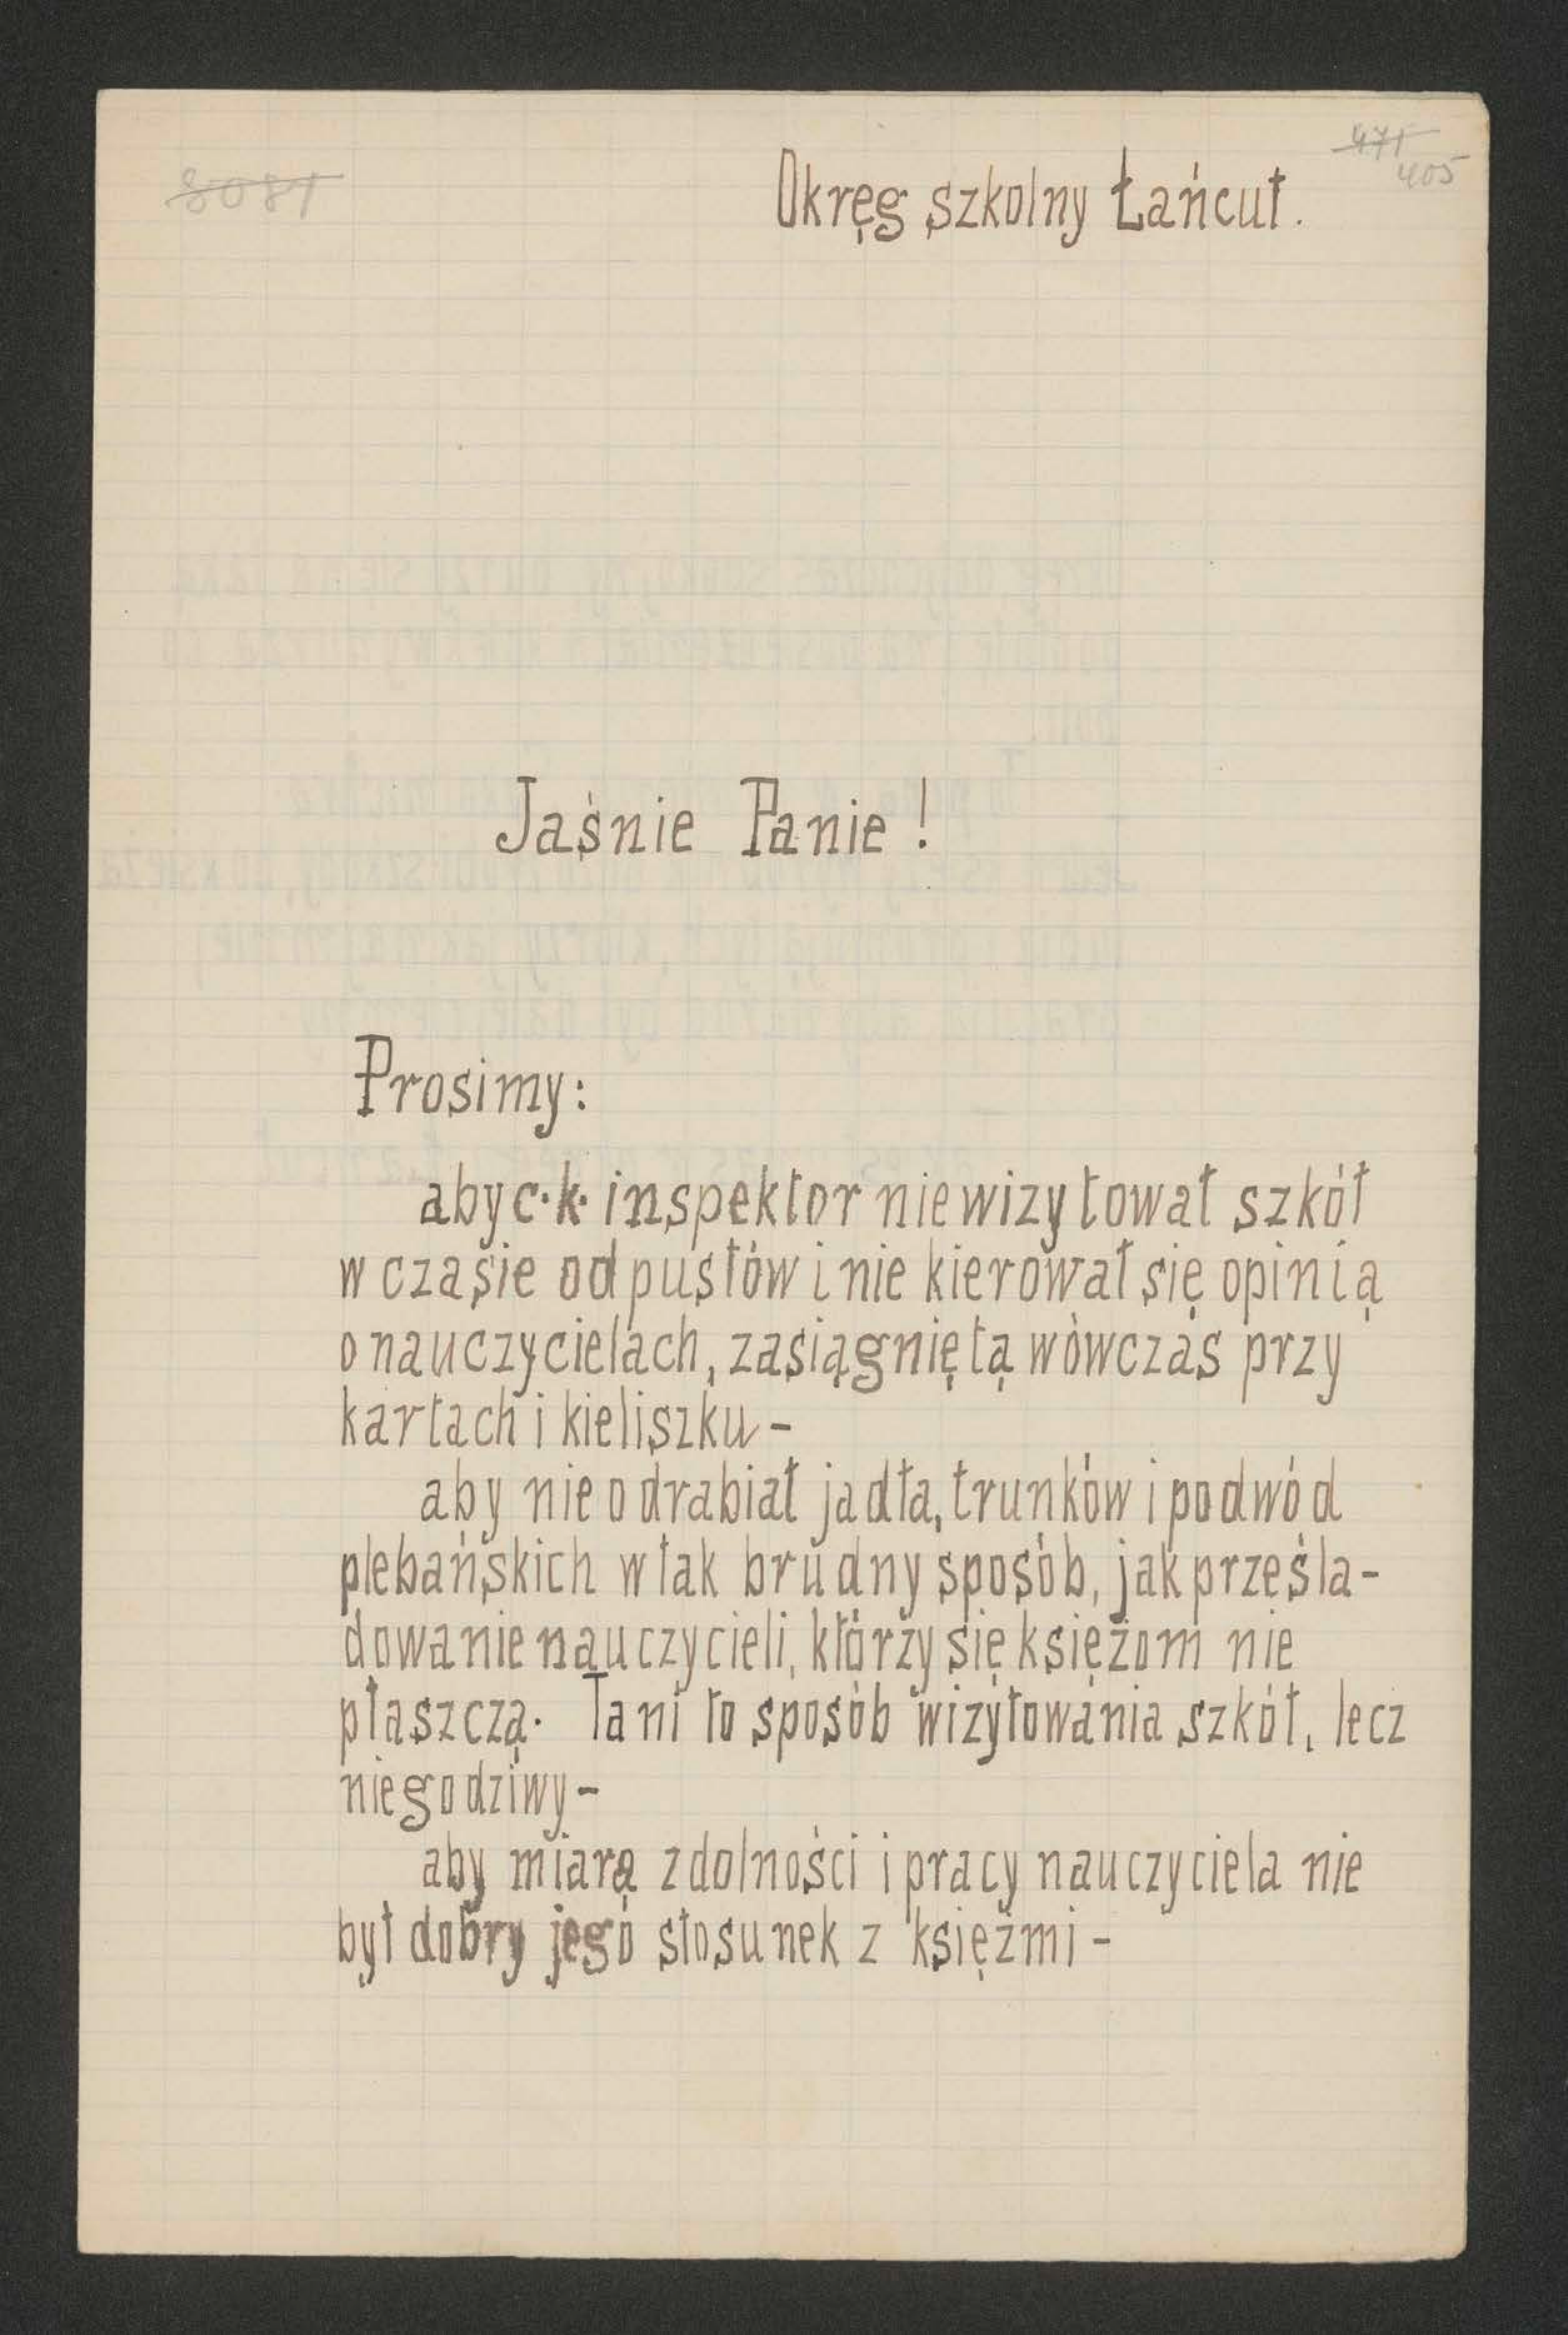 8081
471
405
Okręg szkolny Łańcut.
Jaśnie Panie!
Prosimy:
aby c.k. inspektor nie wizytował szkół
w czasie odpustów i nie kierował się opinią
o nauczycielach, zasiągniętą wówczas przy
kartach i kieliszku -
aby nie odrabiał jadła, trunków i podwód
plebańskich w tak brudny sposób, jak prześla-
dowanie nauczycieli, którzy się księżom nie
płaszczą. Tani to sposób wizytowania szkół, lecz
niegodziwy -
aby miarą zdolności i pracy nauczyciela nie
był dobry jego stosunek z księżmi -